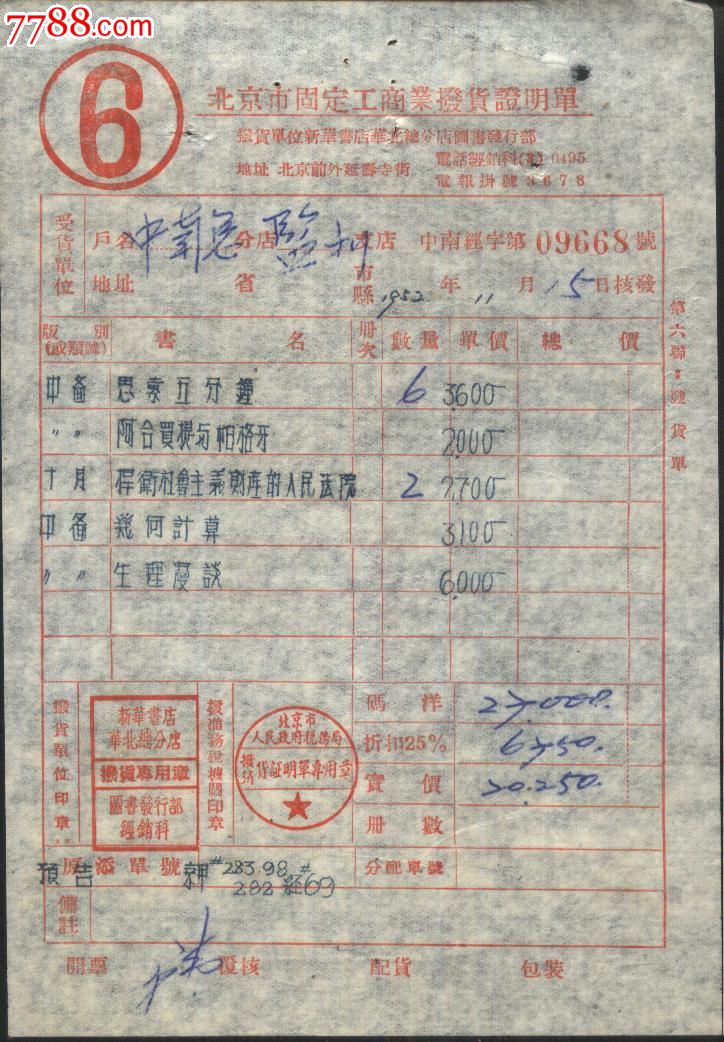 7788.com
6
北京市固定工商業撥貨證明單
撥貨單位新華書店華北總分店圖書發行部
地址 北京前外延壽寺街 電話經銷科(3)0495
電報掛號3678
受貨單位
戶名 中南总 分店 監利 支店 中南經字第 09668 號
地址 省 市縣 1952 年 11 月 15 日核發
第六聯:發貨單
版別(或類號) 書名 冊次 數量 單價 總價
中畜 思索五分鐘 6 3,600
〃 〃 阿合買提与帕格牙 2,000
十月 捍衛社會主義財產的人民法院 2 2,700
中畜 幾何計算 3,100
〃 〃 生理漫談 6,000
撥貨單位印章
新華書店
華北總分店
撥貨專用章
圖書發行部
經銷科
稅務機關印章
北京市
人民政府稅務局
撥銷貨証明單專用章
碼洋 27,000.
折扣25% 6750.
實價 20,250.
冊數
原添單號 預告 京甲#283.98#
282 経69
分配單號
備註
開票 覆核 配貨 包裝